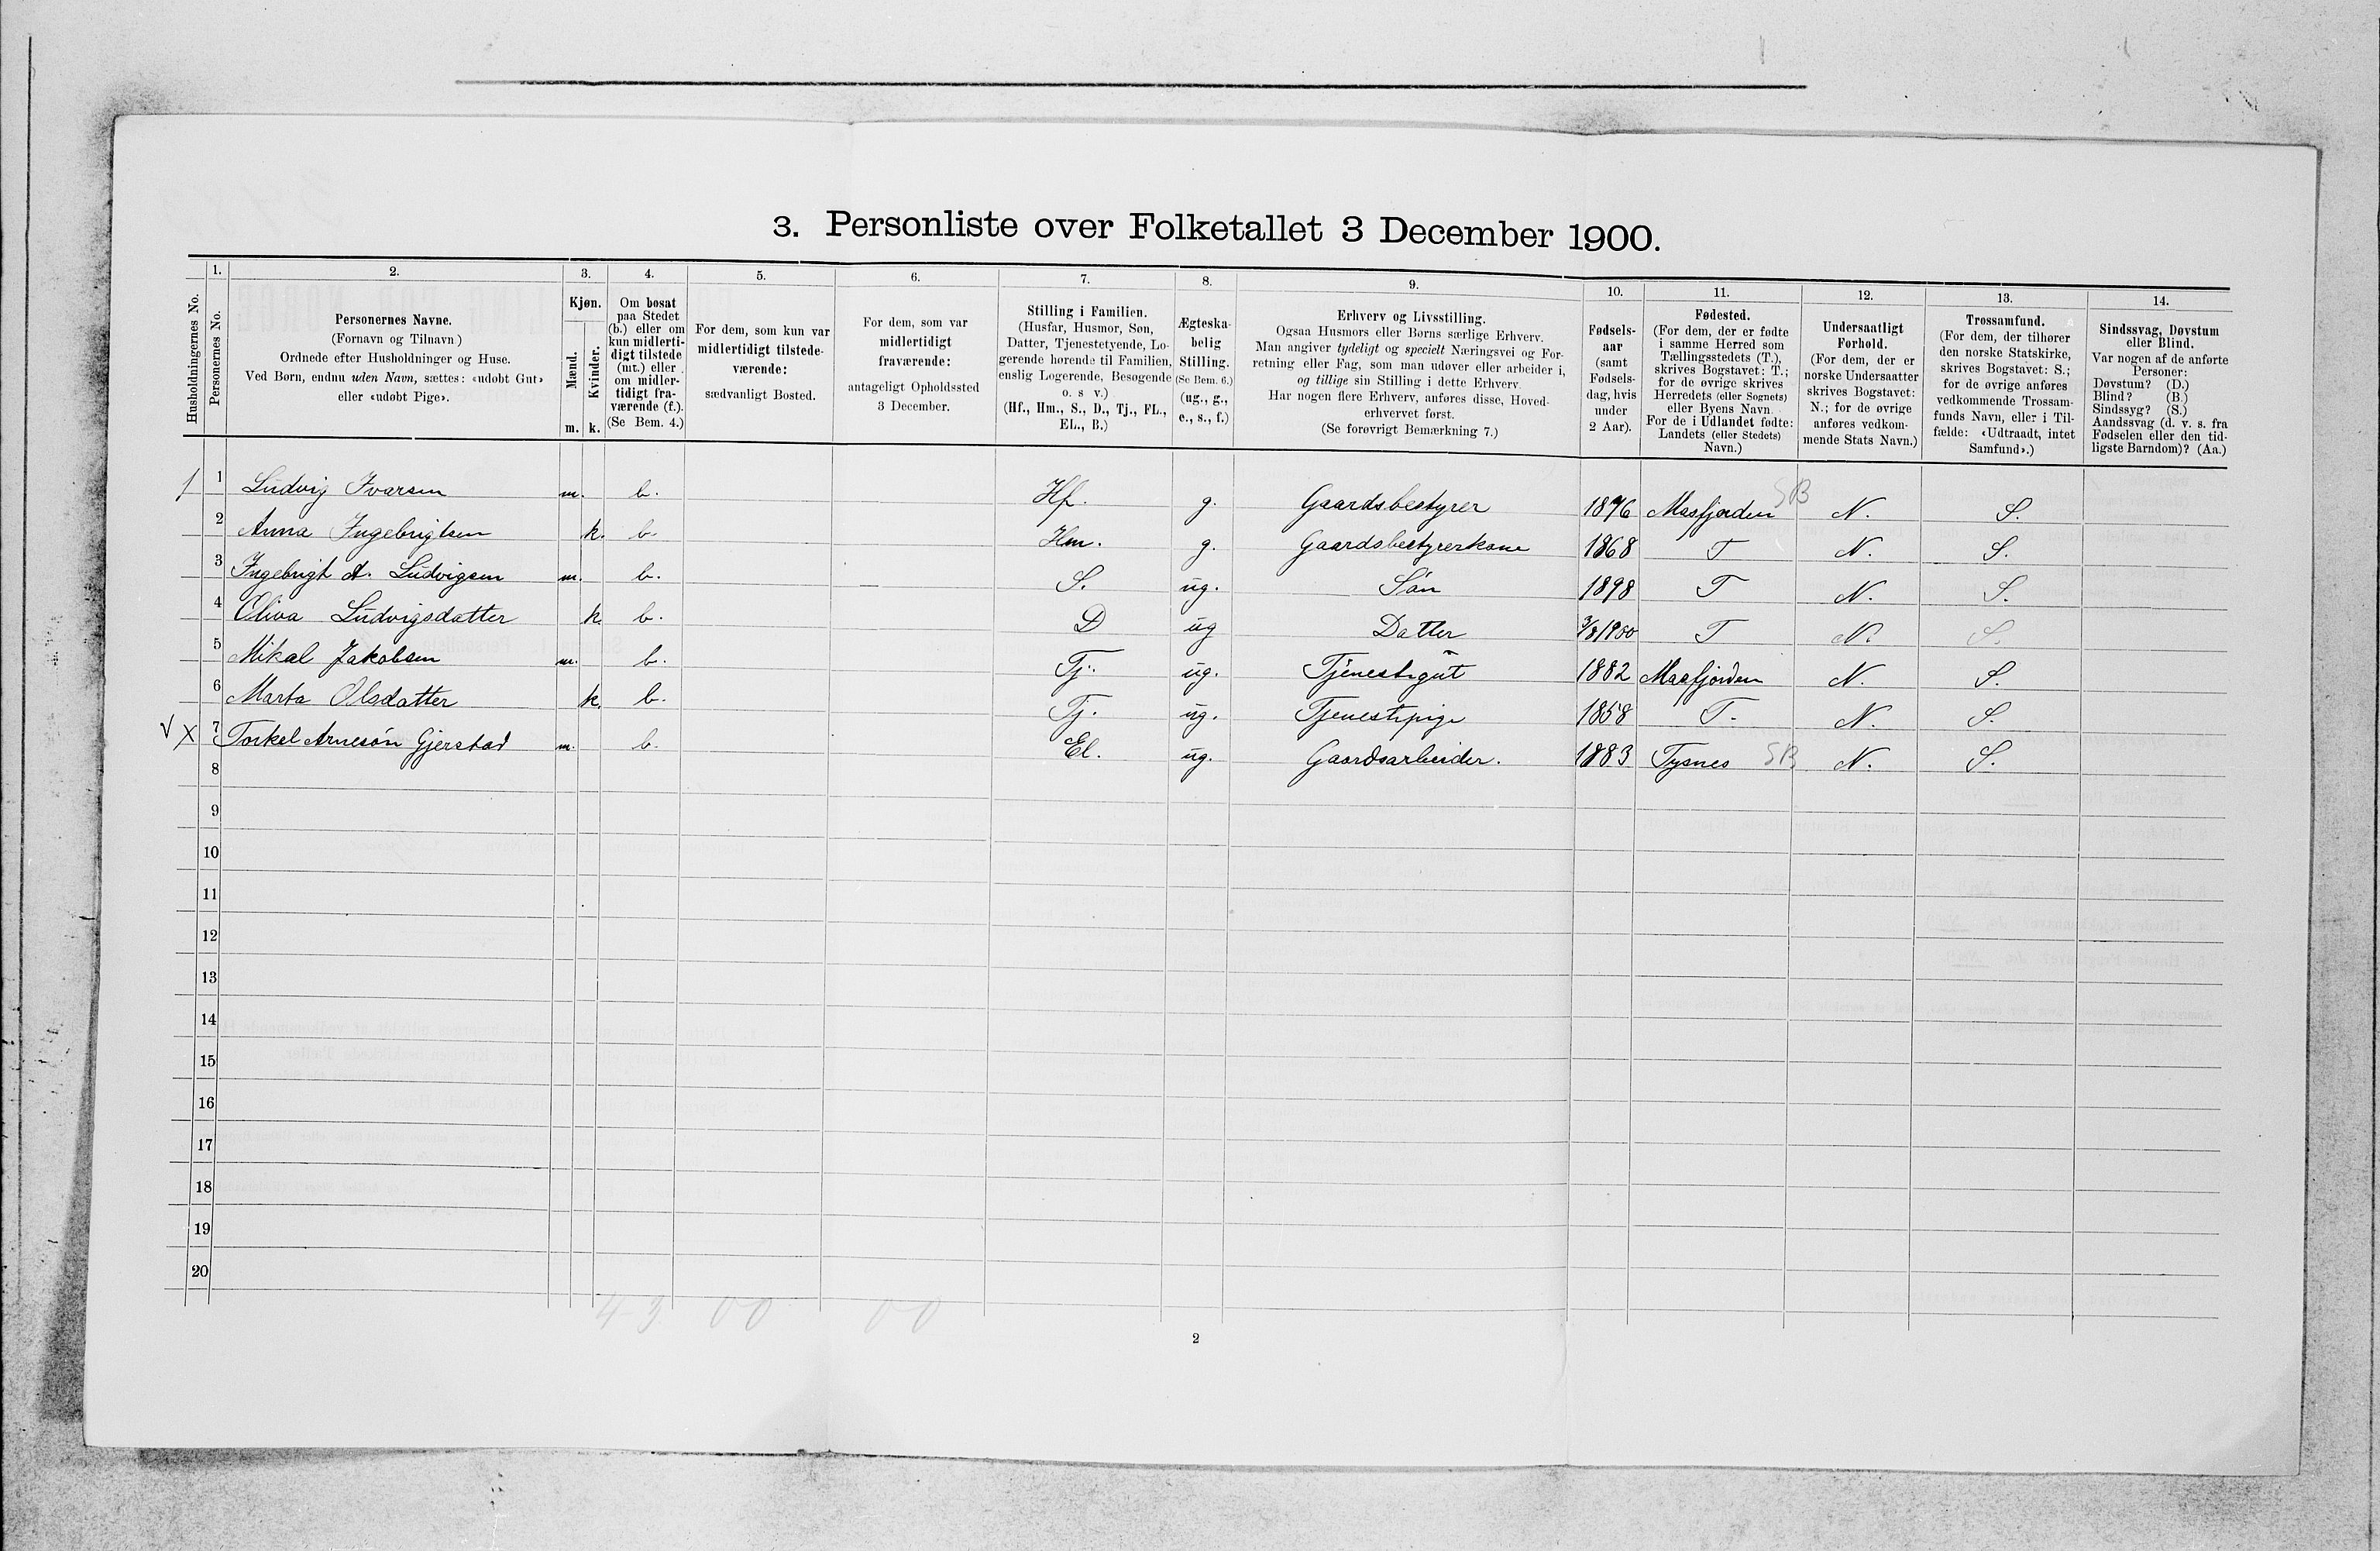 3. Personliste over Folketallet 3 December 1900.
1. 2. 3. 4. 5. 6. 7. 8. 9. 10. 11. 12. 13. 14.
Husholdningernes No.
Personernes No.
Personernes Navne.
(Fornavn og Tilnavn)
Ordnede efter Husholdninger og Huse.
Ved Børn, endnu uden Navn, sættes: «udøbt Gut»
eller «udøbt Pige».
Kjøn.
Mænd.
Kvinder.
m. k.
Om bosat
paa Stedet
(b.) eller om
kun midlerti-
digt tilstede
(mt.) eller
om midler-
tidigt fra-
værende (f.).
(Se Bem. 4.)
For dem, som kun var
midlertidigt tilstede-
værende:
sædvanligt Bosted.
For dem, som var
midlertidigt
fraværende:
antageligt Opholdssted
3 December.
Stilling i Familien.
(Husfar, Husmor, Søn,
Datter, Tjenestetyende, Lo-
gerende hørende til Familien,
enslig Logerende, Besøgende
o. s v.)
(Hf., Hm., S., D., Tj., FL.,
EL., B.)
Ægteska-
belig
Stilling.
(Se Bem. 6.)
(ug., g.,
e., s., f.)
Erhverv og Livsstilling.
Ogsaa Husmors eller Børns særlige Erhverv.
Man angiver tydeligt og specielt Næringsvei og For-
retning eller Fag, som man udøver eller arbeider i,
og tillige sin Stilling i dette Erhverv.
Har nogen flere Erhverv, anføres disse, Hoved-
erhvervet først.
(Se forøvrigt Bemærkning 7.)
Fødsels-
aar
(samt
Fødsels-
dag, hvis
under
2 Aar).
Fødested.
(For dem, der er fødte
i samme Herred som
Tællingsstedets (T.),
skrives Bogstavet: T.;
for de øvrige skrives
Herredets (eller Sognets)
eller Byens Navn.
For de i Udlandet fødte:
Landets (eller Stedets)
Navn.)
Undersaatligt
Forhold.
(For dem, der er
norske Undersaatter
skrives Bogstavet:
N.; for de øvrige
anføres vedkom-
mende Stats Navn.)
Trossamfund.
(For dem, der tilhører
den norske Statskirke,
skrives Bogstavet: S.;
for de øvrige anføres
vedkommende Trossam-
funds Navn, eller i Til-
fælde: «Udtraadt, intet
Samfund».)
Sindssvag, Døvstum
eller Blind.
Var nogen af de anførte
Personer:
Døvstum? (D.)
Blind? (B.)
Sindssyg? (S.)
Aandssvag (d. v. s. fra
Fødselen eller den tid-
ligste Barndom)? (Aa.)
1 1 Ludvig Ivarsen m. b. Hf. g. Gaardsbestyrer 1876 Masfjorden SB N. S.
2 Anna Ingebrigtsen k. b. Hm. g. Gaardsbestyrerkone 1868 T N. S.
3 Ingebrigt A. Ludvigsen m. b. S. ug. Søn 1898 T N. S.
4 Oliva Ludvigsdatter k. b. D ug Datter 3/8 1900 T N. S.
5 Mikal Jakobsen m. b. Tj. ug. Tjenestegut 1882 Masfjorden N. S.
6 Marta Olsdatter k. b. Tj. ug. Tjenestepige 1858 T. N. S.
V X 7 Torkel Arnesøn Gjerstad m. b. El. ug. Gaardsarbeider. 1883 Tysnes SB N. S.
8
9
10
11
12
13
14
15
16
17
18
19
20
4-3 00 00
2